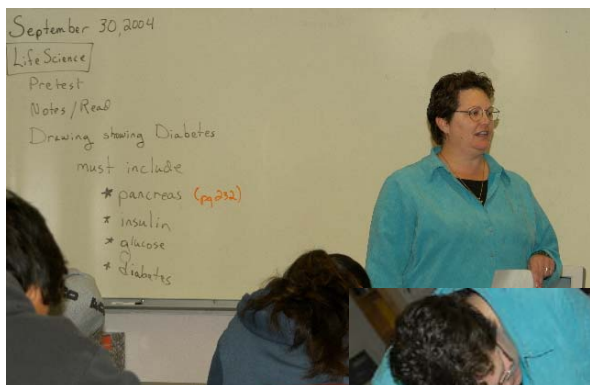 September 30, 2004
Life Science
Pretest
Notes/Read
Drawing showing Diabetes
must include
* pancreas (pg 232)
* insulin
* glucose
* diabetes